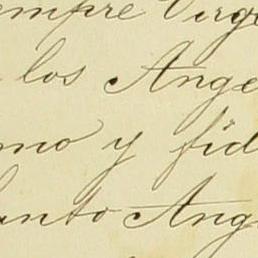 empre Virge
los Ange
mo y fid
anto Ang